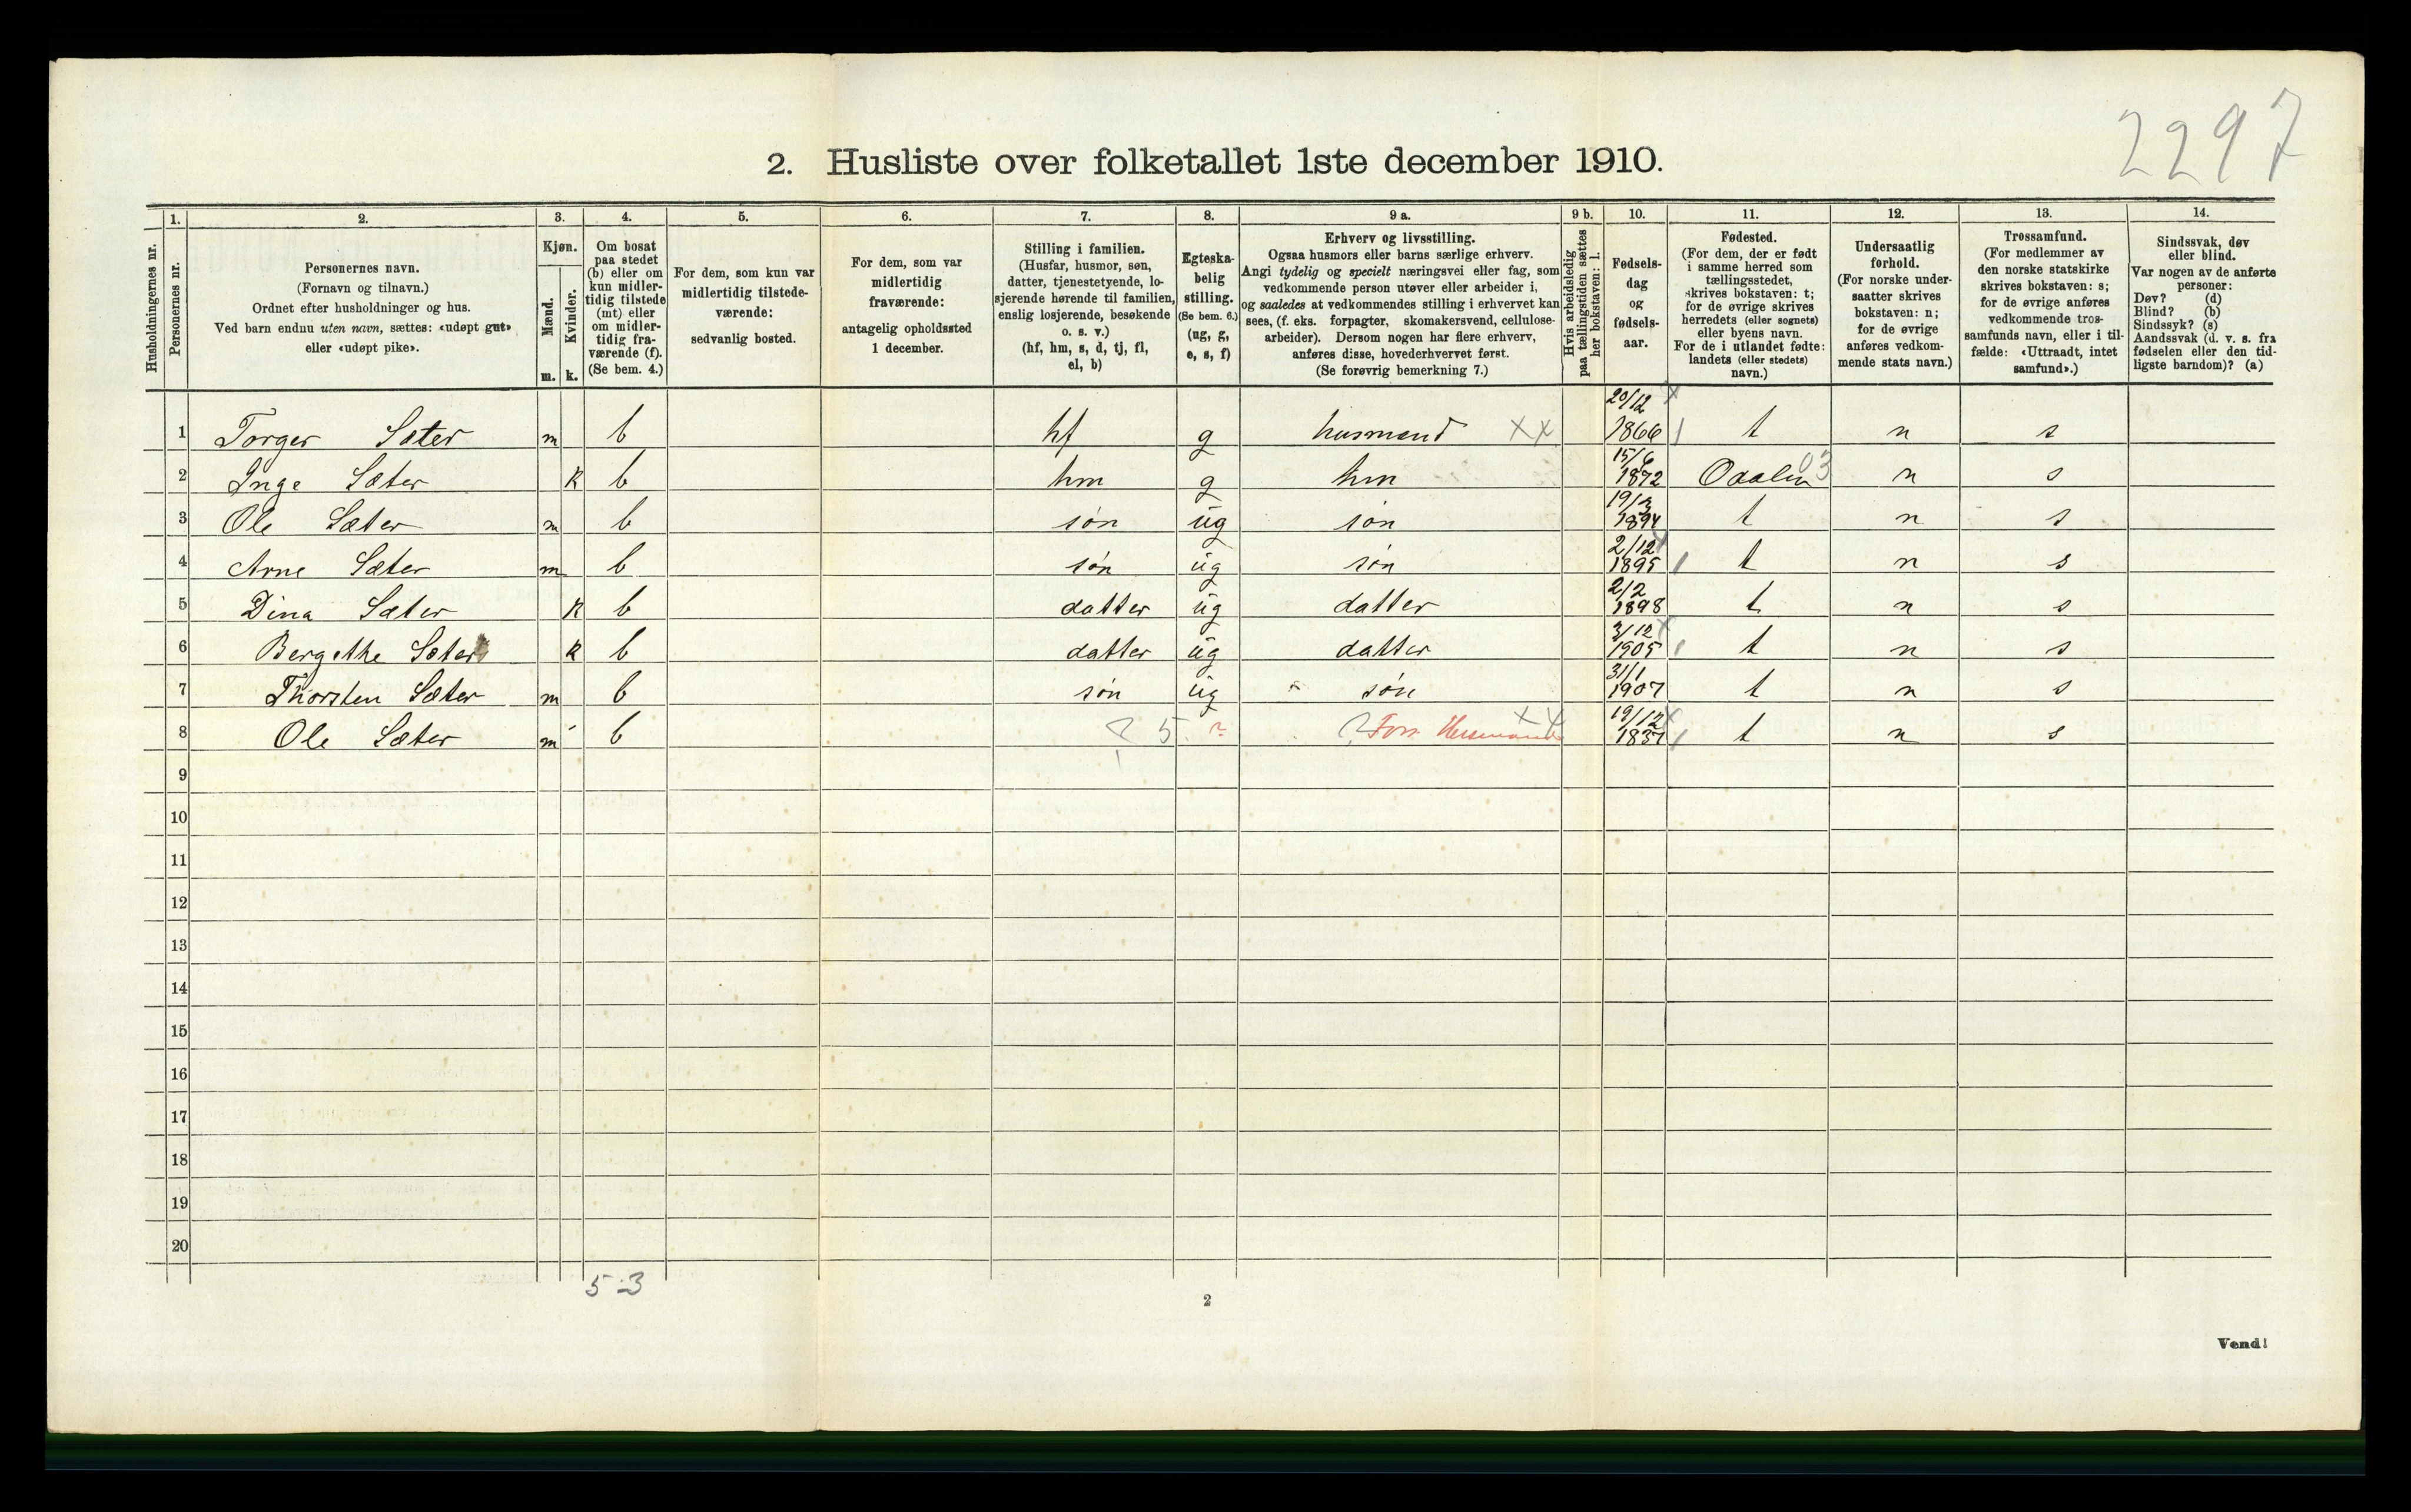 2297
2. Husliste over folketallet 1ste december 1910.
Husholdningernes nr.
1. Personernes nr.
2. Personernes navn.
(Fornavn og tilnavn.)
Ordnet efter husholdninger og hus.
Ved barn endnu uten navn, sættes: «udøpt gut»
eller «udøpt pike».
3. Kjøn.
Mænd. m.
Kvinder. k.
4. Om bosat
paa stedet
(b) eller om
kun midler-
tidig tilstede
(mt) eller
om midler-
tidig fra-
værende (f).
(Se bem. 4.)
5. For dem, som kun var
midlertidig tilstede-
værende:
sedvanlig bosted.
6. For dem, som var
midlertidig
fraværende:
antagelig opholdssted
1 december.
7. Stilling i familien.
(Husfar, husmor, søn,
datter, tjenestetyende, lo-
sjerende hørende til familien,
enslig losjerende, besøkende
o. s. v.)
(hf, hm, s, d, tj, fl,
el, b)
8. Egteska-
belig
stilling.
(Se bem. 6.)
(ug, g,
e, s, f)
9 a. Erhverv og livsstilling.
Ogsaa husmors eller barns særlige erhverv.
Angi tydelig og specielt næringsvei eller fag, som
vedkommende person utøver eller arbeider i,
og saaledes at vedkommendes stilling i erhvervet kan
sees, (f. eks. forpagter, skomakersvend, cellulose-
arbeider). Dersom nogen har flere erhverv,
anføres disse, hovederhvervet først.
(Se forøvrig bemerkning 7.)
9 b. Hvis arbeidsledig
paa tællingstiden sættes
her bokstaven: l.
10. Fødsels-
dag
og
fødsels-
aar.
11. Fødested.
(For dem, der er født
i samme herred som
tællingsstedet,
skrives bokstaven: t;
for de øvrige skrives
herredets (eller sognets)
eller byens navn.
For de i utlandet fødte:
landets (eller stedets)
navn.)
12. Undersaatlig
forhold.
(For norske under-
saatter skrives
bokstaven: n;
for de øvrige
anføres vedkom-
mende stats navn.)
13. Trossamfund.
(For medlemmer av
den norske statskirke
skrives bokstaven: s;
for de øvrige anføres
vedkommende tros-
samfunds navn, eller i til-
fælde: «Uttraadt, intet
samfund».)
14. Sindssvak, døv
eller blind.
Var nogen av de anførte
personer:
Døv? (d)
Blind? (b)
Sindssyk? (s)
Aandssvak (d. v. s. fra
fødselen eller den tid-
ligste barndom)? (a)
1 Torger Sæter m b hf g husmand XX 20/12 1866 1 t n s
2 Inge Sæter k b hm g hm 15/6 1872 Odalen 03 n s
3 Ole Sæter m b søn ug søn 1894 t n s
4 Arne Sæter m b søn ug søn 2/12 1895 1 t n s
5 Dina Sæter k b datter ug datter 2/2 1898 t n s
6 Bergithe Sæter k b datter ug datter 3/12 1905 1 t n s
7 Thorsten Sæter m b søn ug søn 31/1 1907 t n s
8 Ole Sæter m b ? 5 ? ? Forr. Husmand XX 19/12 1837 1 t n s
9
10
11
12
13
14
15
16
17
18
19
20
5-3
2
Vend!